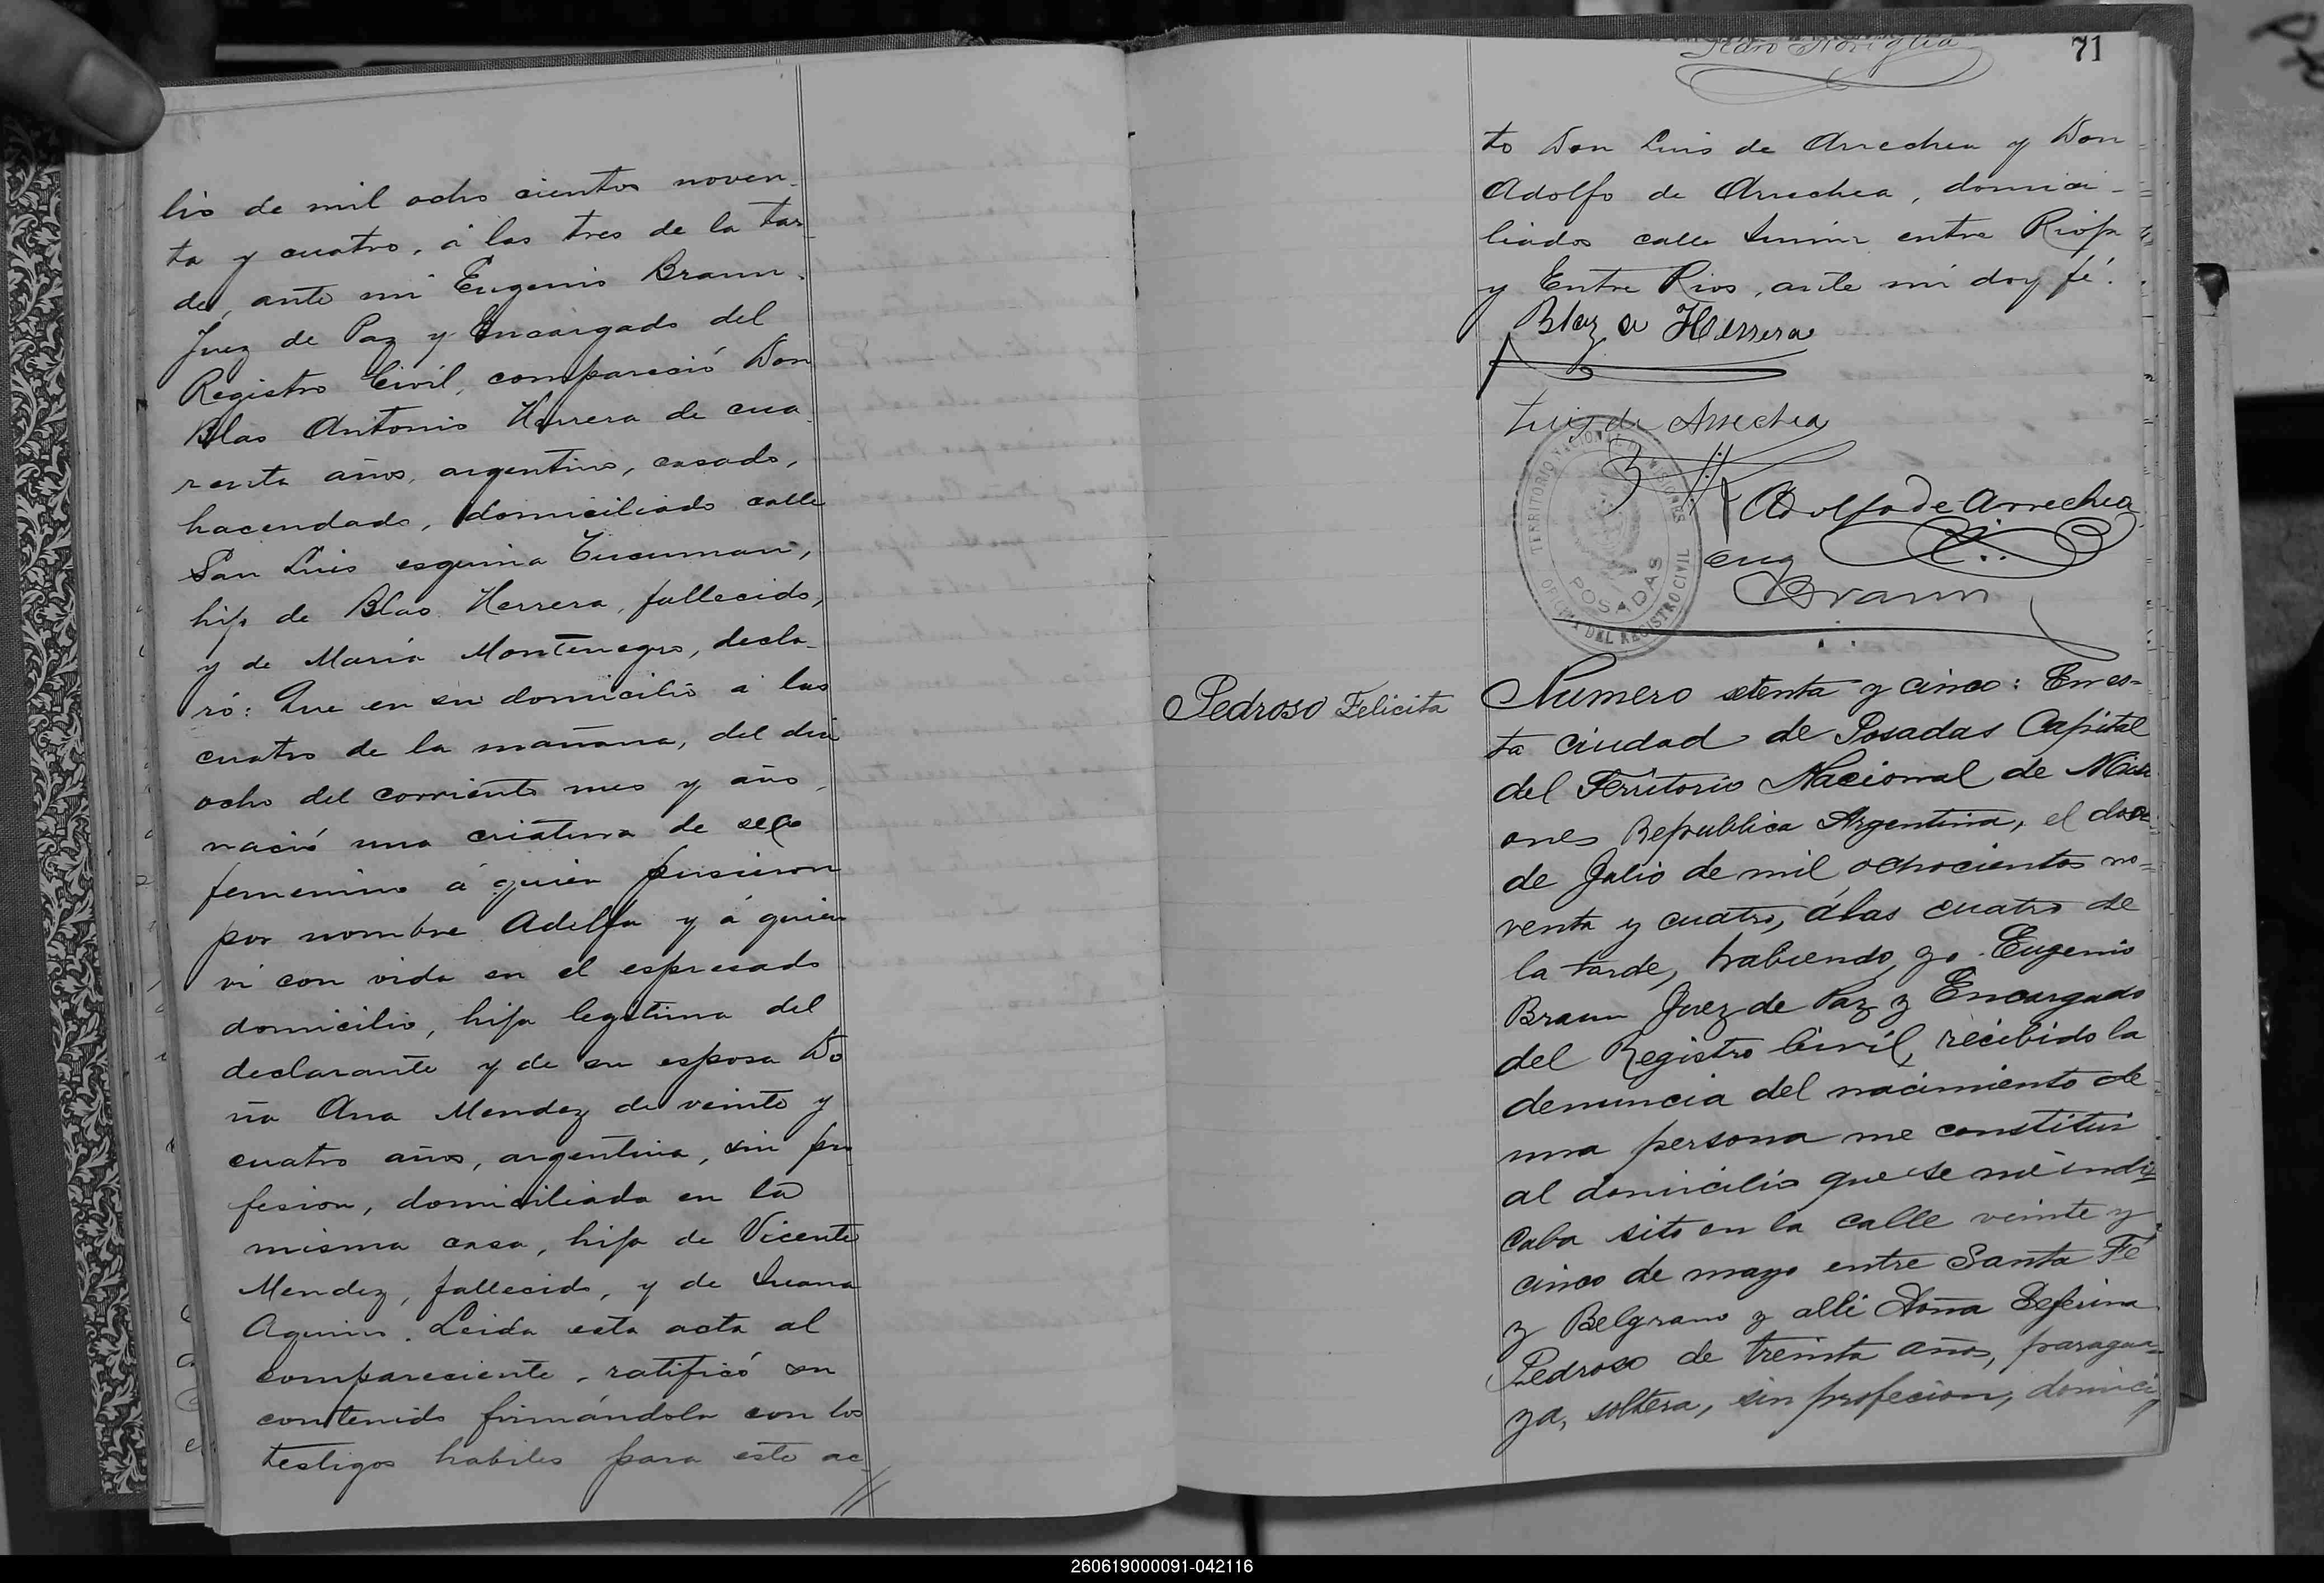 lio de mil ocho cientos noven-
ta y cuatro, á las tres de la tar
de, ante mi Eugenio Braun.
Juez de Paz y Encargado del
Registro Civil, compareció Don
Blas Antonio Herrera de cua
renta años, argentino, casado,
hacendado, domiciliado calle
San Luis esquina Tucuman,
hijo de Blas Herrera, fallecido,
y de María Montenegro, decla-
ró: Que en su domicilio á las
cuatro de la mañana, del dia
ocho del corriente mes y año,
nació una criatura de sexo
femenino á quien pusieron
por nombre Adelfa y á quien
vi con vida en el espresado
domicilio, hija legitima del
declarante y de su esposa Do
ña Ana Mendez de veinte y
cuatro años, argentina, sin pro
fesion, domiciliada en la
misma casa, hija de Vicente
Mendez, fallecido, y de Juana
Aquino. Leida esta acta al
compareciente, ratificó su
contenido firmándola con los
testigos habiles para este ac-
71
to Don Luis de Arrechea y Don
Adolfo de Arrechea, domici-
liados calle Junin entre Rioja
y Entre Rios, ante mi doy fé.
Blaz A Herrera
Luis de Arrechea
Adolfo de Arrechea
Eug
Braun
TERRITORIO NACIONAL DE MISIONES
POSADAS
OFICINA DEL REGISTRO CIVIL
Pedroso Felicita
Numero setenta y cinco: En es-
ta ciudad de Posadas Capital
del Territorio Nacional de Misi
ones Republica Argentina, el doce
de Julio de mil ochocientos no-
venta y cuatro, á las cuatro de
la tarde, habiendo, yo Eugenio
Braun Juez de Paz y Encargado
del Registro Civil, recibido la
denuncia del nacimiento de
una persona me constitui
al domicilio que se me indi
caba sito en la calle veinte y
cinco de mayo entre Santa Fé
y Belgrano y alli Doña Seferina
Pedroso de treinta años, paragua-
ya, soltera, sin profecion, domici
260619000091-042116